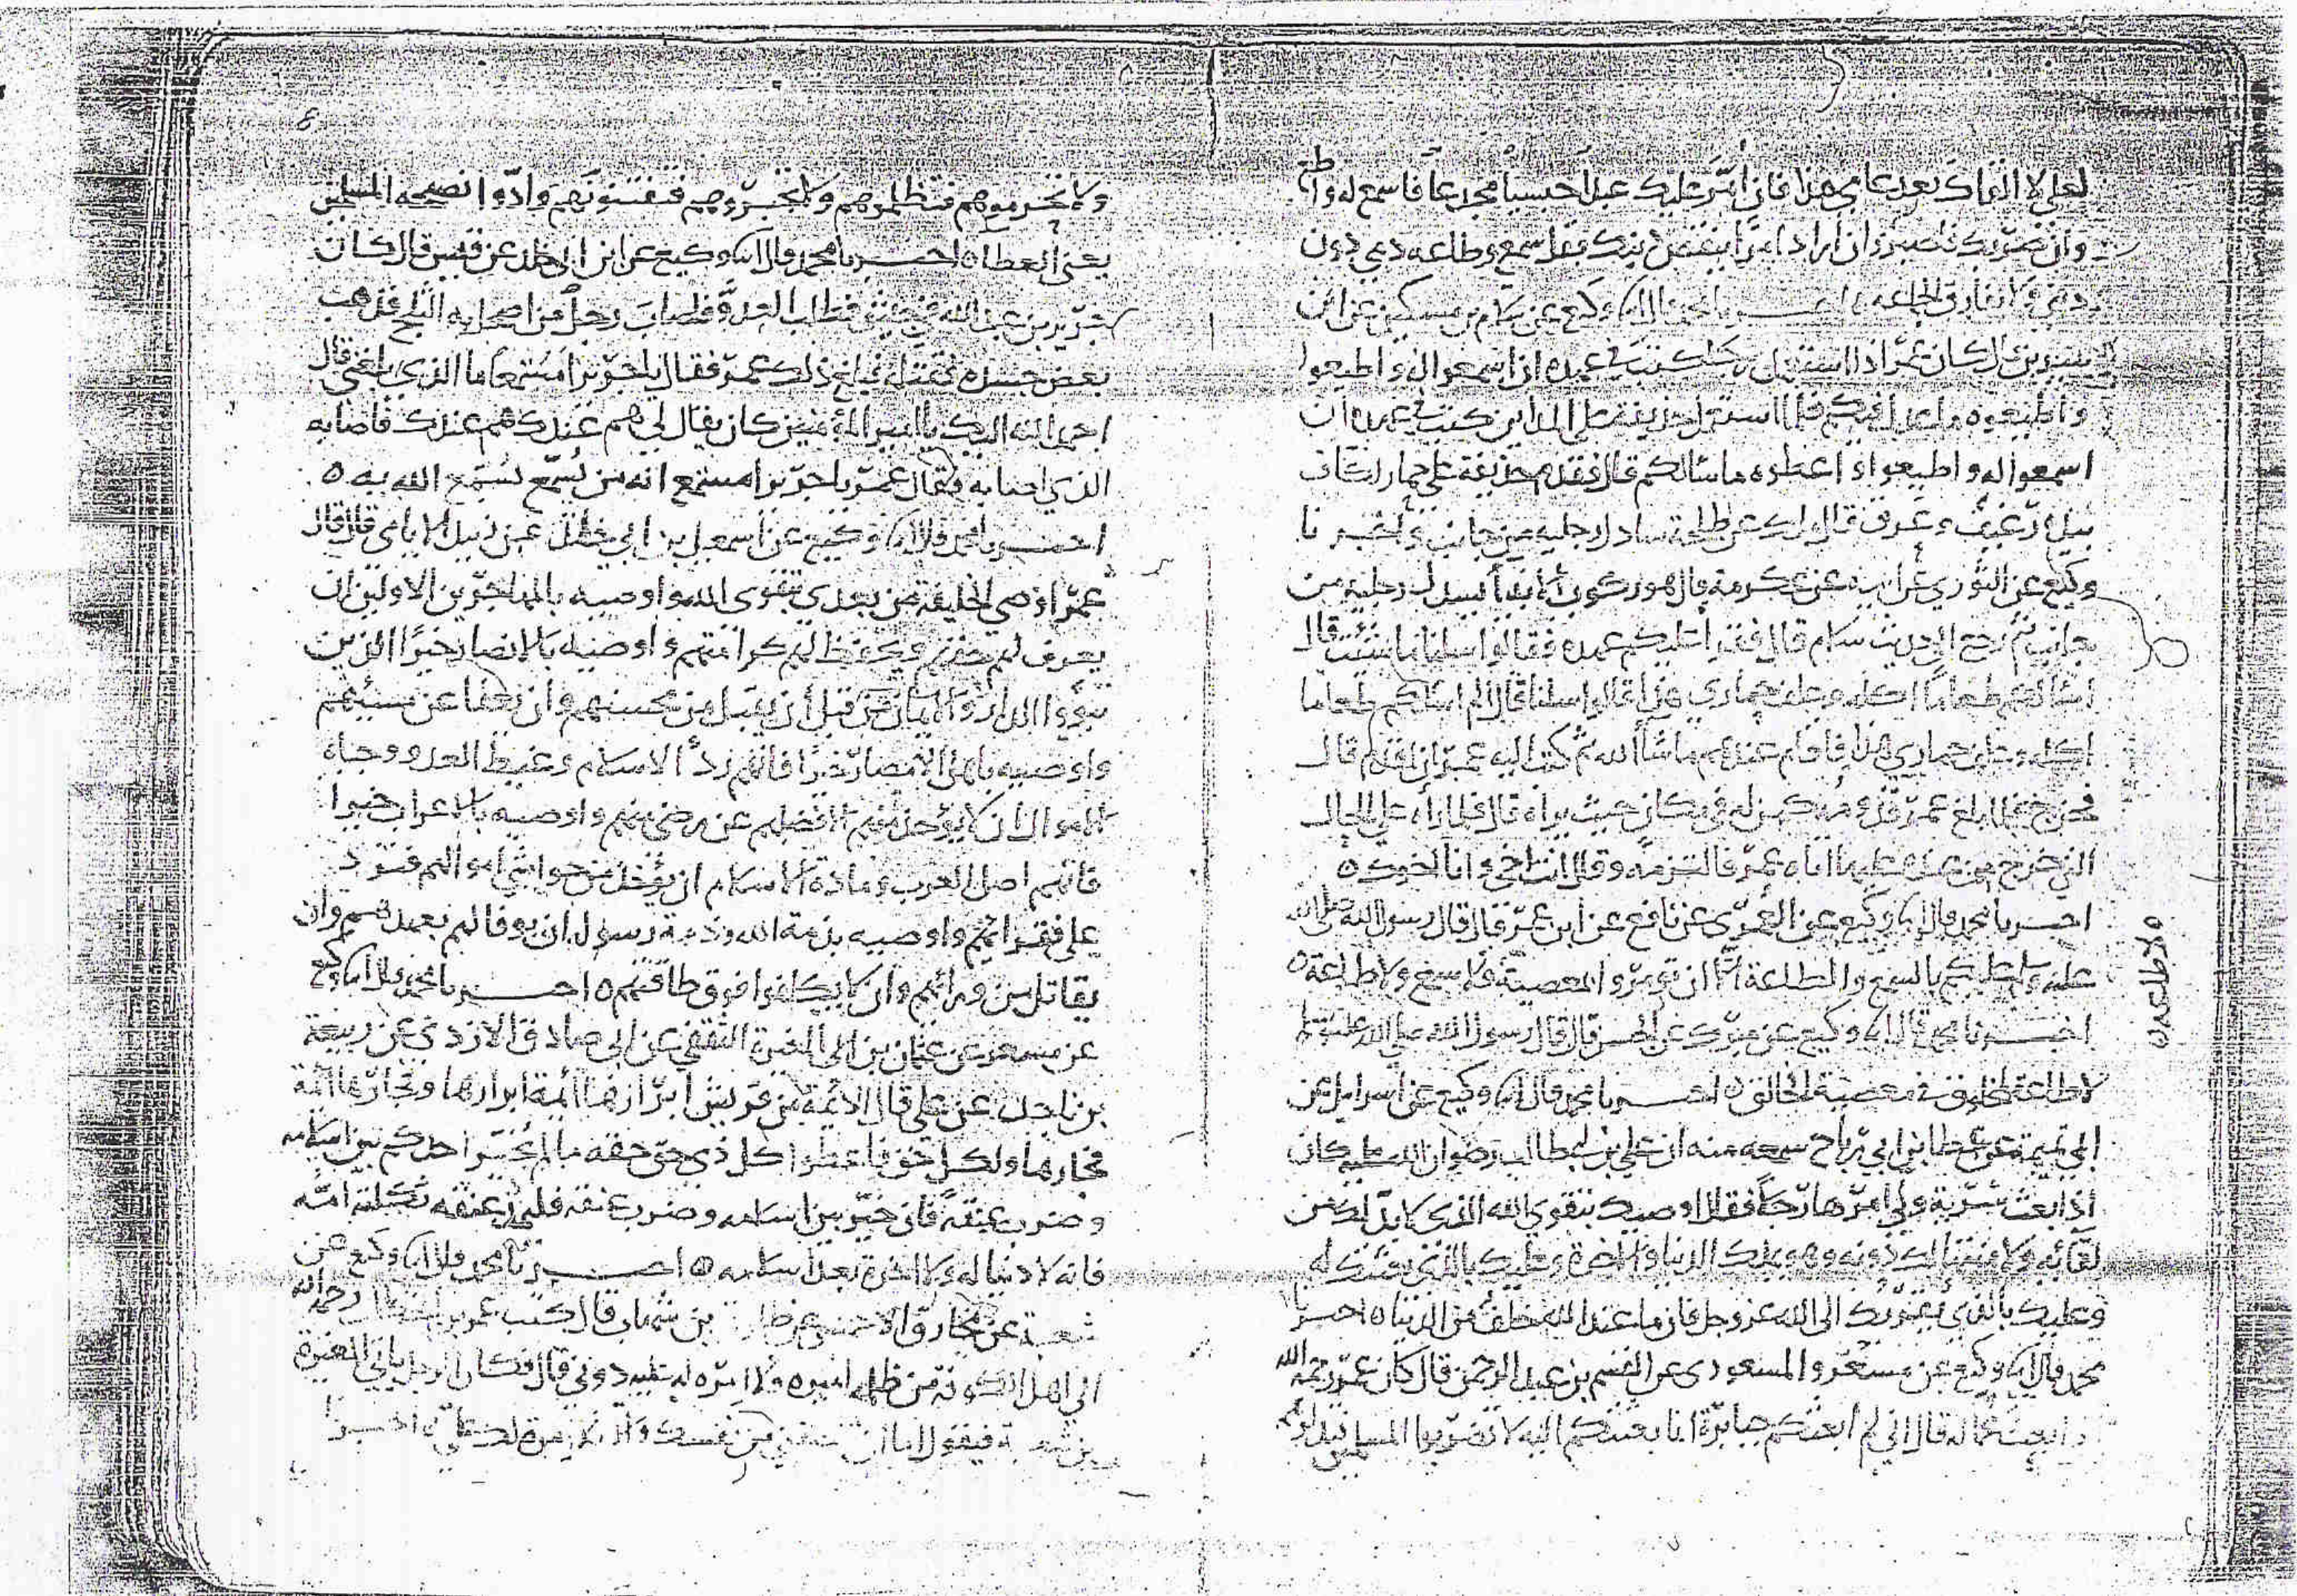 لعلي لا القاك بعد عامي هذا فان أمر عليك عبدا حبشيا مجدعا فاسمع له واطع
وان ضربك فاصبر وان اراد امرا ينقص دينك فقل سمع وطاعه دمي دون
ديني ولا تفارق الجماعه اخبرنا محمد قال انا وكيع عن سلام بن مسكين عن ابن
سيرين قال كان عمر اذا استعمل رجلا كتب في عهده ان اسمعوا له واطيعوا
واطيعوه ما عدل فيكم فلما استعمل حذيفة على المداين كتب في عهده ان
اسمعوا له واطيعوا واعطوه ما سالكم قال فقدم حذيفة على حمار اكاف
بيده رغيف وعرق قال مالك عن طلحة سادل رجليه من جانب واخبرنا
وكيع عن الثوري عن ابيه عن عكرمة قال هو ركوب الانبياء يسدل رجليه من
جانب ثم رجع الى حديث سلام قال فقرأ عليهم عهده فقالوا سلنا ما شئت قال
اسالكم طعاما اكله وعلف حماري هذا قالوا سلنا قال الم اسالكم طعاما
اكله وعلف حماري هذا فاقام عندهم ما شا الله ثم كتب اليه عمر ان اقدم قال
فخرج فلما بلغ عمر قدومه كمن له في مكان حيث يراه قال فلما راه على الحال
الذي خرج من عنده عليها اتاه عمر فالتزمه وقال انت اخي وانا اخوك ٥
اخبرنا محمد قال انا وكيع عن العمري عن نافع عن ابن عمر قال قال رسول الله صلى الله
عليه وسلم عليكم بالسمع والطاعة الا ان تومروا بالمعصية فلا سمع ولا طاعة ٥
اخبرنا محمد قال انا وكيع عن مبرك عن الحسن قال قال رسول الله صلى الله عليه وسلم
لا طاعة لمخلوق في معصية الخالق ٥ اخبرنا محمد قال انا وكيع عن اسرايل عن
ابي تميمة عن عطا بن ابي رباح سمعه منه ان علي بن ابي طالب رضوان الله عليه كان
اذا بعث سرية ولى امرها رجلا فقال اوصيك بتقوى الله الذي لا بد لك من
لقائه ولا منتها لك دونه وهو يملك الدنيا والاخرة وعليك بالذي بعثتك له
وعليك بالذي يقربك الى الله عز وجل فان ما عند الله خلف من الدنيا ٥ اخبرنا
محمد قال انا وكيع عن مسعر والمسعودي عن القسم بن عبد الرحمن قال كان عمر رحمه الله
اذا بعث عماله قال اني لم ابعثكم جبابرة انما بعثتكم ايمة لا تضربوا المسلمين فتذلوهم
٥ لا طاعه ٥
ولا تحرموهم فتظلموهم ولا تجمروهم فتفتنونهم وادوا نصيحه المسلمين
يعني العطا ٥ اخبرنا محمد قال انا وكيع عن ابن ابي خلد عن قيس قال كان
جرير بن عبد الله فطلب العدو فاصاب رجل من اصحابه الثلج فذهب
بعض جسده فبلغ ذلك عمر فقال يا جرير امستمعا ما الذي بلغني قال
احمد الله اليك يا امير المؤمنين كان يقال لي هم عندك هم عندك فاصابه
الذي اصابه فقال عمر يا جرير امستمع انه من يسمع يسمع الله به ٥
اخبرنا محمد قال انا وكيع عن اسمعيل بن ابي خلد عن زبيد الايامي قال قال
عمر اوصي الخليفة من بعدي بتقوى الله واوصيه بالمهاجرين الاولين ان
يعرف لهم حقهم ويحفظ لهم كرامتهم واوصيه بالانصار خيرا الذين
تبووا الدار والايمان من قبل أن يقبل من محسنهم وان يعفا عن مسيئهم
واوصيه باهل الامصار خيرا فانهم ردأ الاسلام وغيظ العدو وجباة
الاموال ان لا يؤخذ منهم الا فضلهم عن رضى منهم واوصيه بالاعراب خيرا
فانهم اصل العرب ومادة الاسلام ان يؤخذ من حواشي اموالهم فترد
على فقرائهم واوصيه بذمة الله وذمة رسوله ان يوفا لهم بعهدهم وان
يقاتل من ورائهم وان لا يكلفوا فوق طاقتهم ٥ اخبرنا محمد قال انا وكيع
عن مسعر عن عثمان بن ابي المغيرة الثقفي عن ابي صادق الازدي عن ربيعة
بن ناجد عن علي قال الائمة من قريش ابرارها أئمة ابرارها وفجارها أئمة
فجارها ولكل حق فاعطوا كل ذي حق حقه ما لم يخير احدكم بين اسلامه
وضرب عنقه فان خير بين اسلامه وضرب عنقه فليمدد عنقه ثكلته امه
فانه لا دنيا له ولا اخرة بعد اسلامه ٥ اخبرنا محمد قال انا وكيع عن
شعبة عن مخارق الاحمسي عن طارق بن شهاب قال كتب عمر بن الخطاب رحمه الله
الى اهل الكوفة من ظلمه اميره فلا امره له عليه دوني قال فكان الرجل ياتي المغيرة
بن شعبة فيقول اما ان تنصفني من نفسك والا فلا امرة لك علي ٥ اخبرنا